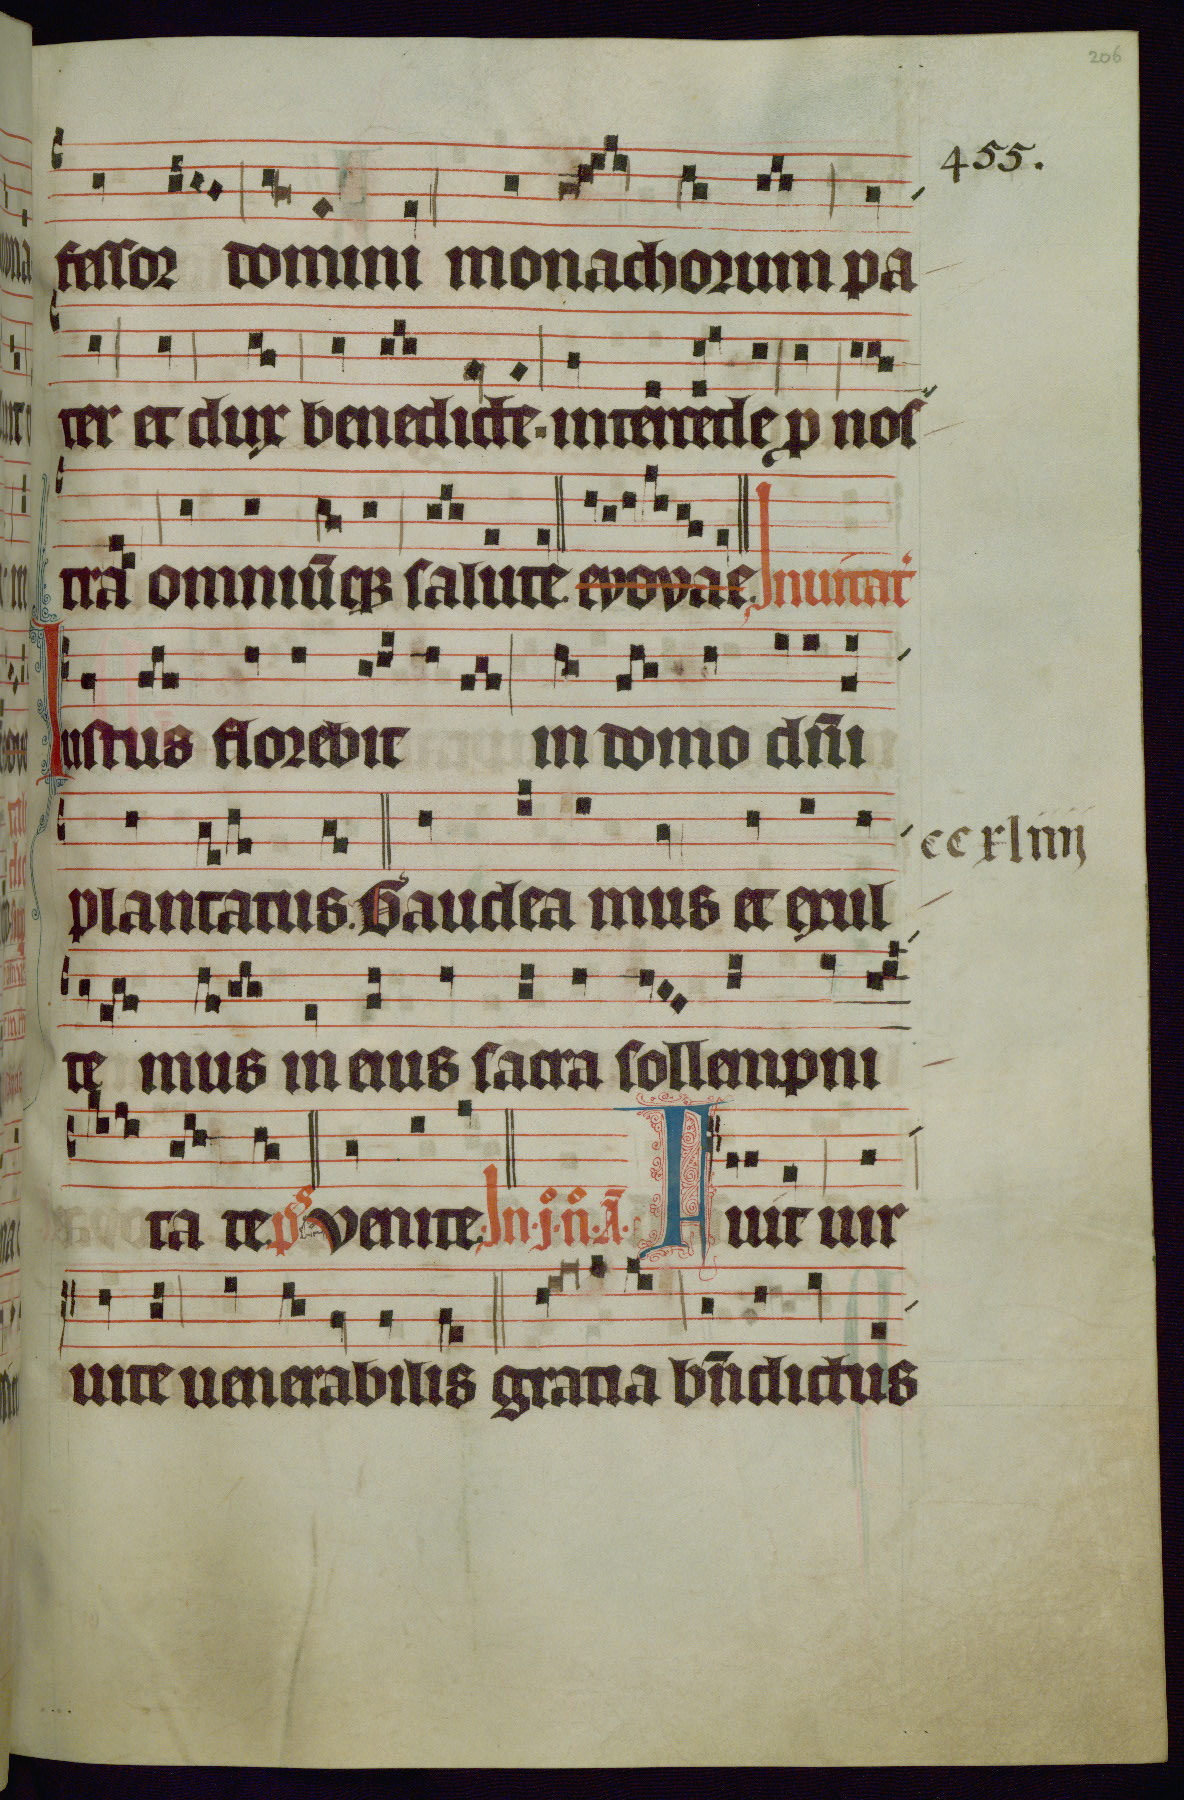 206
455.
fessor domini monachorum pa
ter et dux benedicte. intercede p nos
tra omniūqꝫ salute. evovae. Inuitat
Iustus florebit in domo dn̄i
plantatus. Gaudea mus et exul
ccxliiij
te mus in eius sacra sollempni
ta te. ps venite. In .j. n̄. A. Fuit uir
uite uenerabilis gratia bn̄dictus